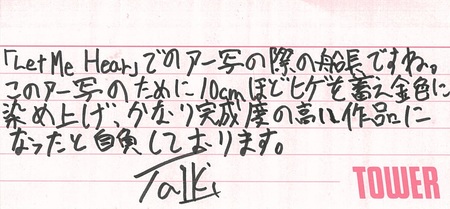 「Let Me Hear」でのアー写の際の船長ですね。
このアー写のために10cmほどヒゲを蓄え金色に
染め上げ、かなり完成度の高い作品に
なったと自負しております。
Taiki
TOWER